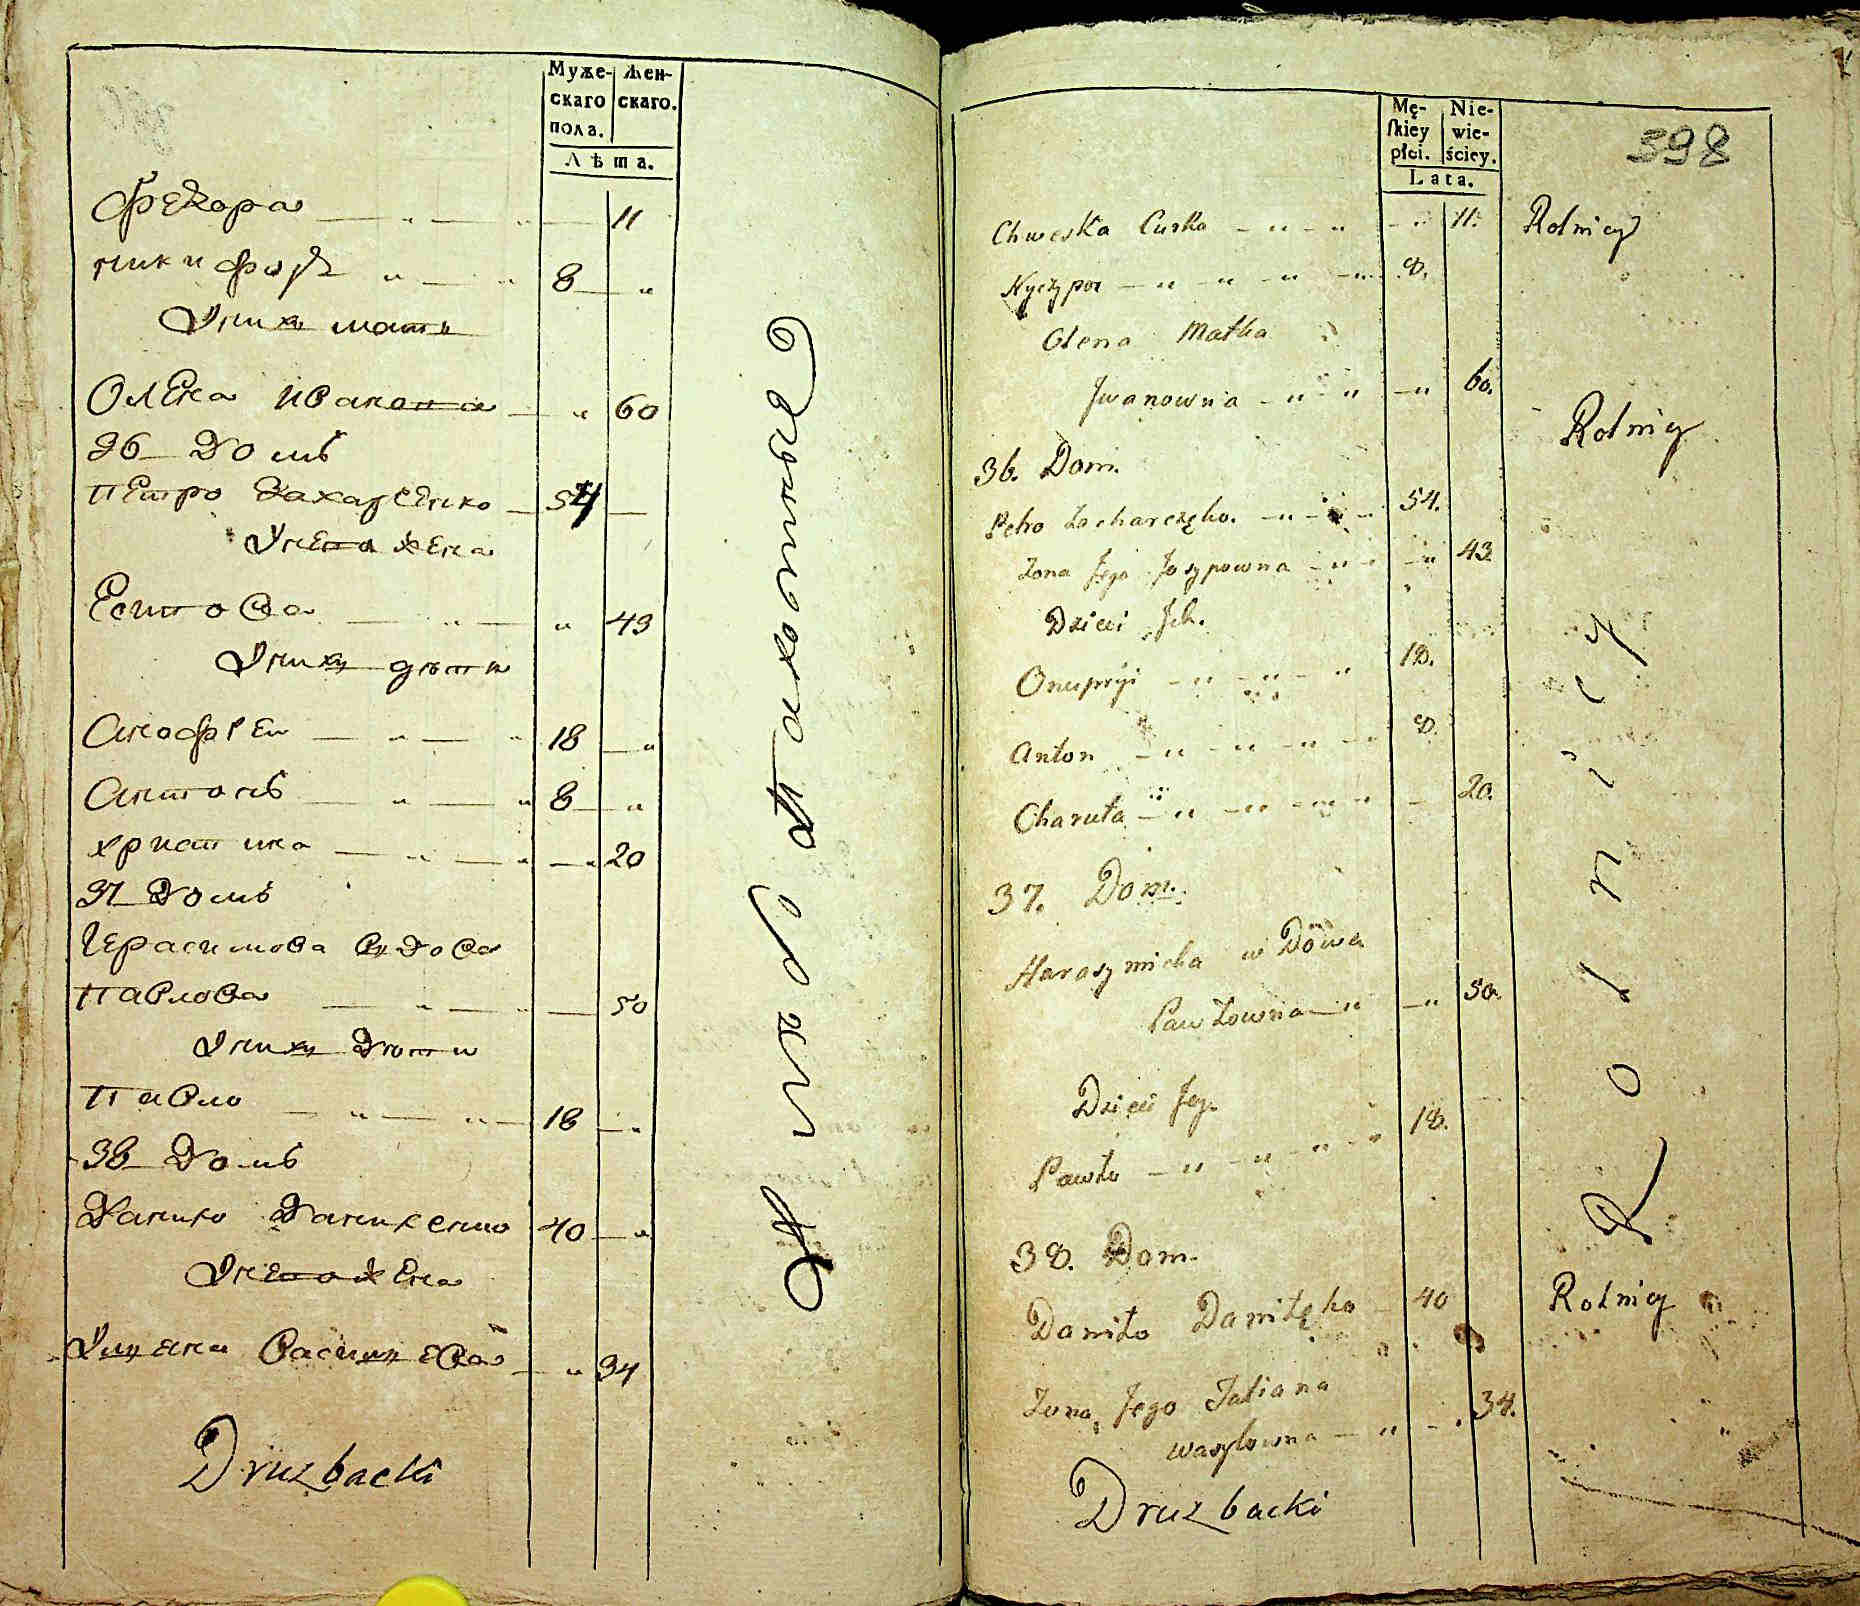 Муже-
скаго
пола.
Жен-
скаго.
Лѣта.
Фекора 11
никифоръ 8
Уних мати
Олена иванона 60
36 Домъ
петро Захарченко 54
Унена жена
Есипова 43
Уних дѣти
Анофрей 18
Антонъ 8
христина 20
37 Домъ
Герасимова вдова
павлова 50
Уних дети
павло 18
38 Домъ
Данило Даниленко 40
Унена жена
василева 34
Druzbacki
Mę-
skiey
płci.
Nie-
wie-
ściey.
Lata.
398
Chweska Curka 11. Rolnicy
Nyczypor 8.
Olena Matka
Jwanowna 60. Rolnicy
36. Dom.
Petro Zacharczęko. 54.
Zona Jego Josypowna 43
Dzieci Jch.
Onupryi 18.
Anton 8.
Charuta 20.
37. Dom.
Harasymicha w Dowa
Pawłowna 50.
Dzieci Jey.
Pawło 18.
38. Dom.
Daniło Daniłęko 40 Rolnicy
Zona Jego Tatiana
wasylowna 34.
Druzbacki
Rolnicy